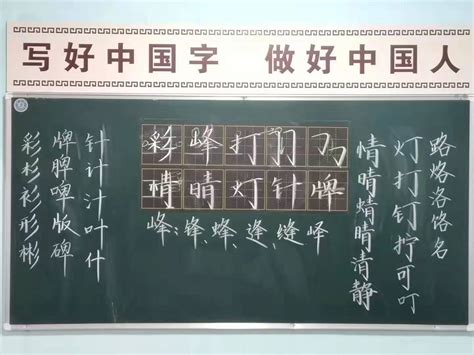 写好中国字 做好中国人
彩杉衫形彬
牌脾啤版碑
针计汁叶什
彩峰打
情晴灯针牌
峰:锋、蜂、逢、缝峄
情晴蜻睛清静
灯打钉拧可叮
路烙洛名